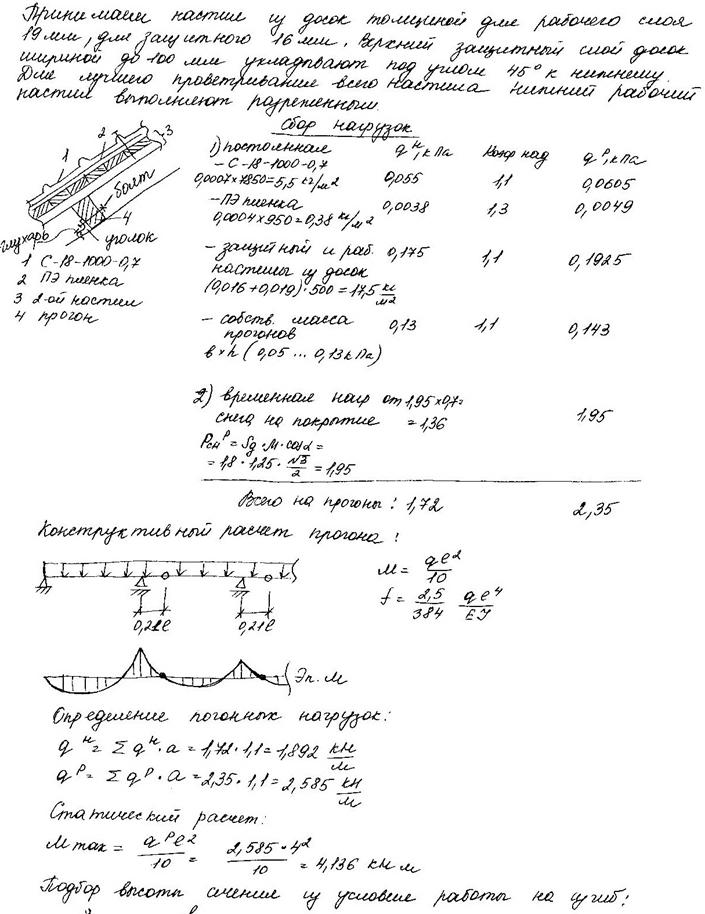 Принимаем настил из досок толщиной для рабочего слоя
19мм, для защитного 16мм. Верхний защитный слой досок
шириной до 100 мм укладывают под углом 45° к нижнему.
Для лучшего проветривания всего настила нижний рабочий
настил выполняют разреженным.
Сбор нагрузок
1) постоянная qᴴ, кПа Коэф над qᴾ, кПа
- С-18-1000-0,7
0,0007×7850=5,5 кг/м² 0,055 1,1 0,0605
- ПЭ пленка 0,0038 1,3 0,0049
0,0004×950=0,38 кг/м²
- защитный и раб. 0,175 1,1 0,1925
настилы из досок
(0,016+0,019)·500=17,5 кг/м2
- собств. масса 0,13 1,1 0,143
прогонов
в×h (0,05 ... 0,13кПа)
1 2 3
болт
4
глухарь
уголок
1 С-18-1000-0,7
2 ПЭ пленка
3 2-ой настил
4 прогон
2) временная нагр от 1,95×0,7=
снега на покрытие =1,36 1,95
Рснᴾ = Sg·М·cosα=
= 1,8·1,25·√3/2 = 1,95
Всего на прогоны: 1,72 2,35
Конструктивный расчет прогона:
М = qℓ²/10
f = 2,5/384 qℓ⁴/EJ
0,21ℓ 0,21ℓ
Эп. М
Определение погонных нагрузок:
qᴴ = Σqᴴ·а = 1,72·1,1 = 1,892 кН/м
qᴾ = Σqᴾ·а = 2,35·1,1 = 2,585 кН/м
Статический расчет:
М max = qᴾℓ²/10 = 2,585·4²/10 = 4,136 кН м
Подбор высоты сечения из условие работы на изгиб: